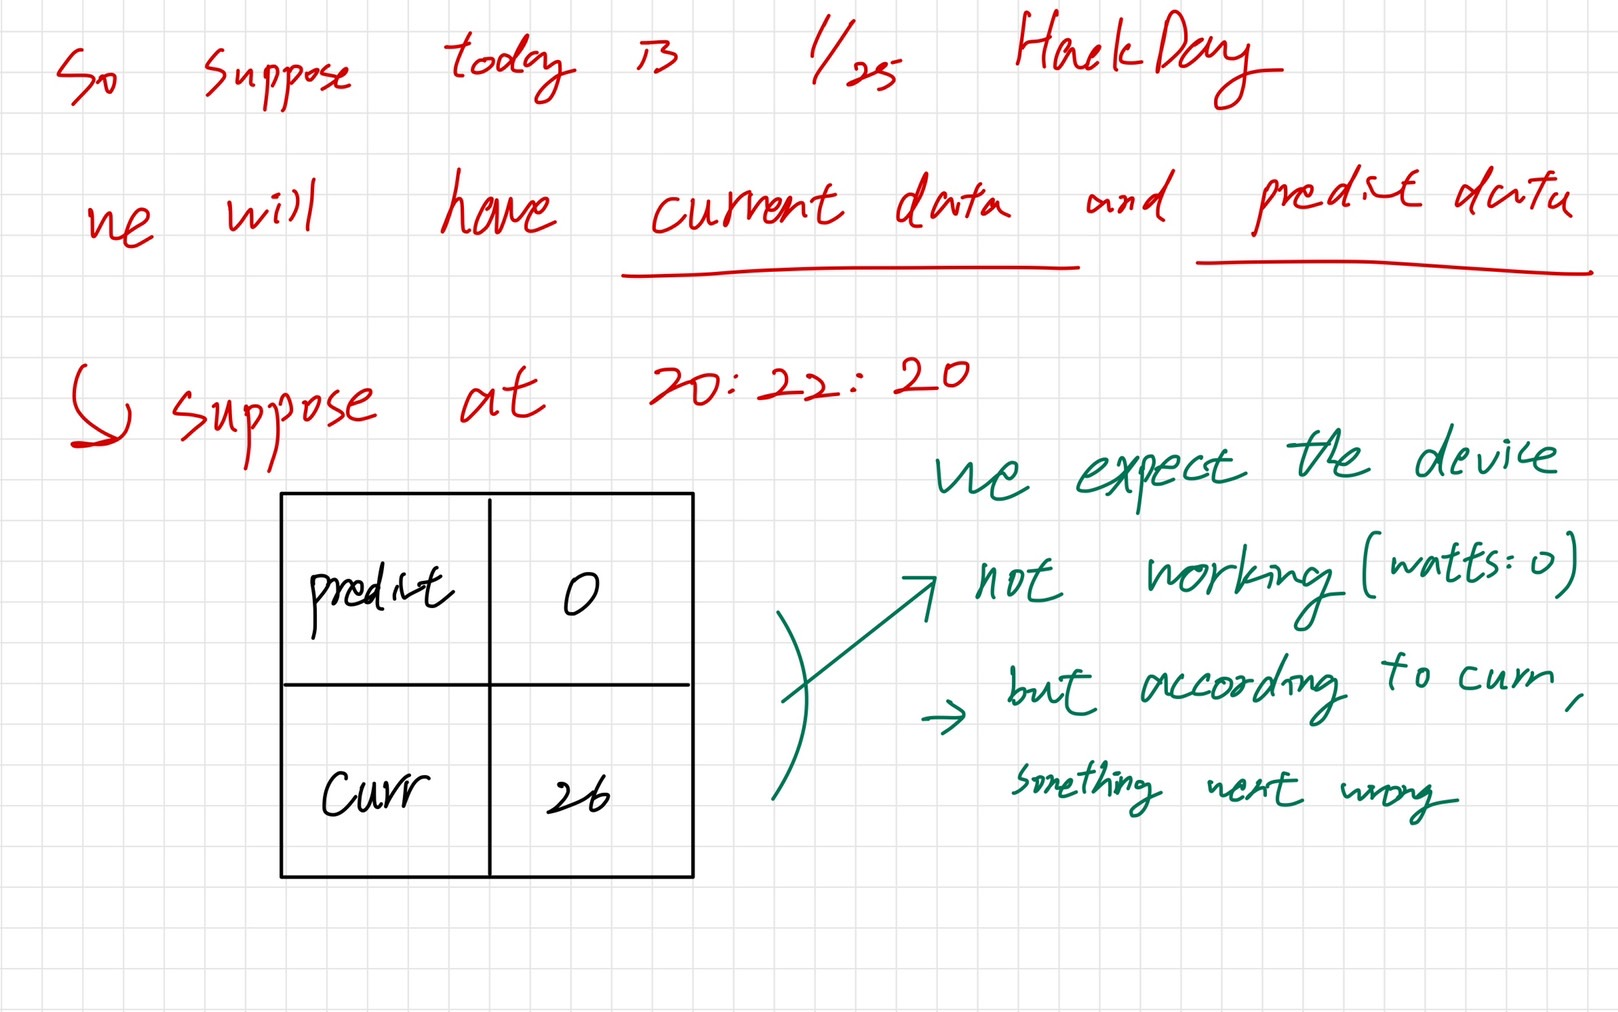 So suppose today is 1/25 HackDay
we will have current data and predict data
suppose at 20:22:20
we expect the device
not working (watts: 0)
but according to curr,
something went wrong
predict 0
Curr 26